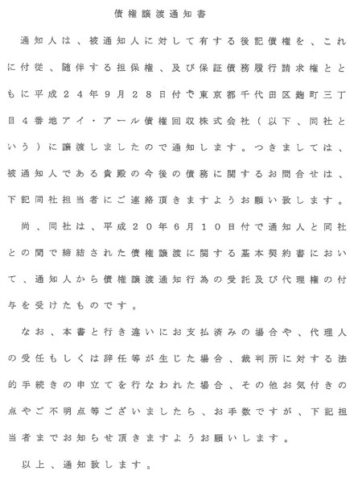 債権譲渡通知書
通知人は、被通知人に対して有する後記債権を、これ
に付従、随伴する担保権、及び保証債務履行請求権とと
もに平成２４年９月２８日付で東京都千代田区麹町三丁
目４番地アイ・アール債権回収株式会社（以下、同社と
いう）に譲渡しましたので通知します。つきましては、
被通知人である貴殿の今後の債務に関するお問合せは、
下記同社担当者にご連絡頂きますようお願い致します。
尚、同社は、平成２０年６月１０日付で通知人と同社
との間で締結された債権譲渡に関する基本契約書におい
て、通知人から債権譲渡通知行為の受託及び代理権の付
与を受けたものです。
なお、本書と行き違いにお支払済みの場合や、代理人
の受任もしくは辞任等が生じた場合、裁判所に対する法
的手続きの申立てを行なわれた場合、その他お気付きの
点やご不明点等ございましたら、お手数ですが、下記担
当者までお知らせ頂きますようお願いします。
以上、通知致します。